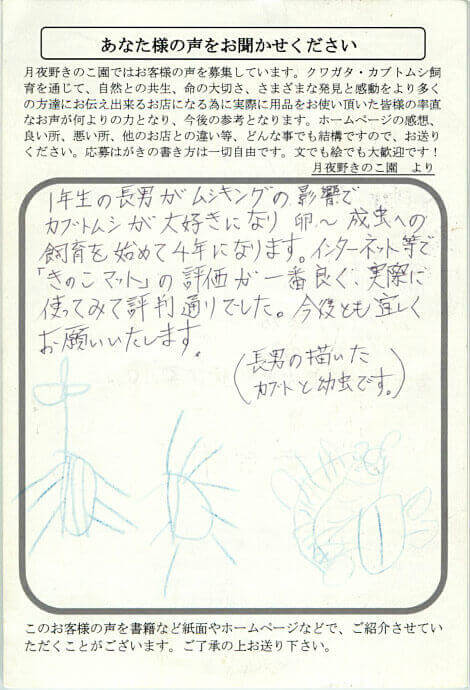 あなた様の声をお聞かせください
月夜野きのこ園ではお客様の声を募集しています。クワガタ・カブトムシ飼
育を通じて、自然との共生、命の大切さ、さまざまな発見と感動をより多く
の方達にお伝え出来るお店になる為に実際に用品をお使い頂いた皆様の率直
なお声が何よりの力となり、今後の参考となります。ホームページの感想、
良い所、悪い所、他のお店との違い等、どんな事でも結構ですので、お送り
ください。応募はがきの書き方は一切自由です。文でも絵でも大歓迎です！
月夜野きのこ園　より
1年生の長男がムシキングの影響で
カブトムシが大好きになり 卵～成虫への
飼育を始めて4年になります。インターネット等で
「きのこマット」の評価が一番良く、実際に
使ってみて評判通りでした。今後とも宜しく
お願いいたします。
（長男の描いた
カブトと幼虫です。）
このお客様の声を書籍など紙面やホームページなどで、ご紹介させてい
ただくことがございます。ご了承の上お送り下さい。